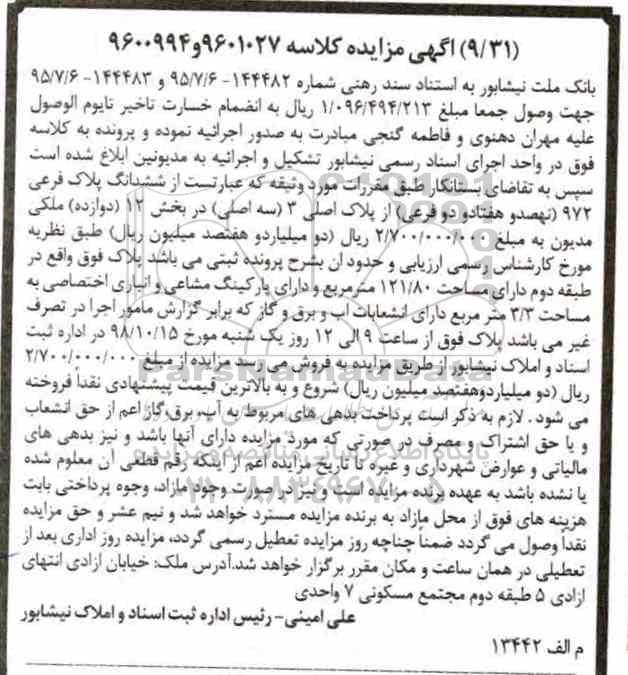 (۹/۳۱) اگهی مزایده کلاسه ۹۶۰۱۰۲۷و۹۶۰۰۹۹۴
بانک ملت نیشابور به استناد سند رهنی شماره ۱۴۴۴۸۲- ۹۵/۷/۶ و ۱۴۴۴۸۳- ۹۵/۷/۶
جهت وصول جمعا مبلغ ۱/۰۹۶/۴۹۴/۲۱۳ ریال به انضمام خسارت تاخیر تایوم الوصول
علیه مهران دهنوی و فاطمه گنجی مبادرت به صدور اجرائیه نموده و پرونده به کلاسه
فوق در واحد اجرای اسناد رسمی نیشابور تشکیل و اجرائیه به مدیونین ابلاغ شده است
سپس به تقاضای بستانکار طبق مقررات مورد وثیقه که عبارتست از ششدانگ پلاک فرعی
۹۷۲ (نهصدو هفتادو دو فرعی) از پلاک اصلی ۳ (سه اصلی) در بخش ۱۲ (دوازده) ملکی
مدیون به مبلغ ۲/۷۰۰/۰۰۰/۰۰۰ ریال (دو میلیاردو هفتصد میلیون ریال) طبق نظریه
مورخ کارشناس رسمی ارزیابی و حدود ان بشرح پرونده ثبتی می باشد پلاک فوق واقع در
طبقه دوم دارای مساحت ۱۲۱/۸۰ مترمربع و دارای پارکینگ مشاعی و انباری اختصاصی به
مساحت ۳/۳ متر مربع دارای انشعابات اب و برق و گاز که برابر گزارش مامور اجرا در تصرف
غیر می باشد پلاک فوق از ساعت ۹ الی ۱۲ روز یک شنبه مورخ ۹۸/۱۰/۱۵ در اداره ثبت
اسناد و املاک نیشابور از طریق مزایده به فروش می رسد مزایده از مبلغ ۲/۷۰۰/۰۰۰/۰۰۰
ریال (دو میلیاردوهفتصد میلیون ریال) شروع و به بالاترین قیمت پیشنهادی نقداً فروخته
می شود . لازم به ذکر است پرداخت بدهی های مربوط به آب، برق، گاز اعم از حق انشعاب
و یا حق اشتراک و مصرف در صورتی که مورد مزایده دارای آنها باشد و نیز بدهی های
مالیاتی و عوارض شهرداری و غیره تا تاریخ مزایده اعم از اینکه رقم قطعی آن معلوم شده
یا نشده باشد به عهده برنده مزایده است و نیز در صورت وجود مازاد، وجوه پرداختی بابت
هزینه های فوق از محل مازاد به برنده مزایده مسترد خواهد شد و نیم عشر و حق مزایده
نقداً وصول می گردد ضمناً چنانچه روز مزایده تعطیل رسمی گردد، مزایده روز اداری بعد از
تعطیلی در همان ساعت و مکان مقرر برگزار خواهد شد.آدرس ملک: خیابان ازادی انتهای
ازادی ۵ طبقه دوم مجتمع مسکونی ۷ واحدی
علی امینی- رئیس اداره ثبت اسناد و املاک نیشابور
م الف ۱۳۴۴۲
ParsNamadData